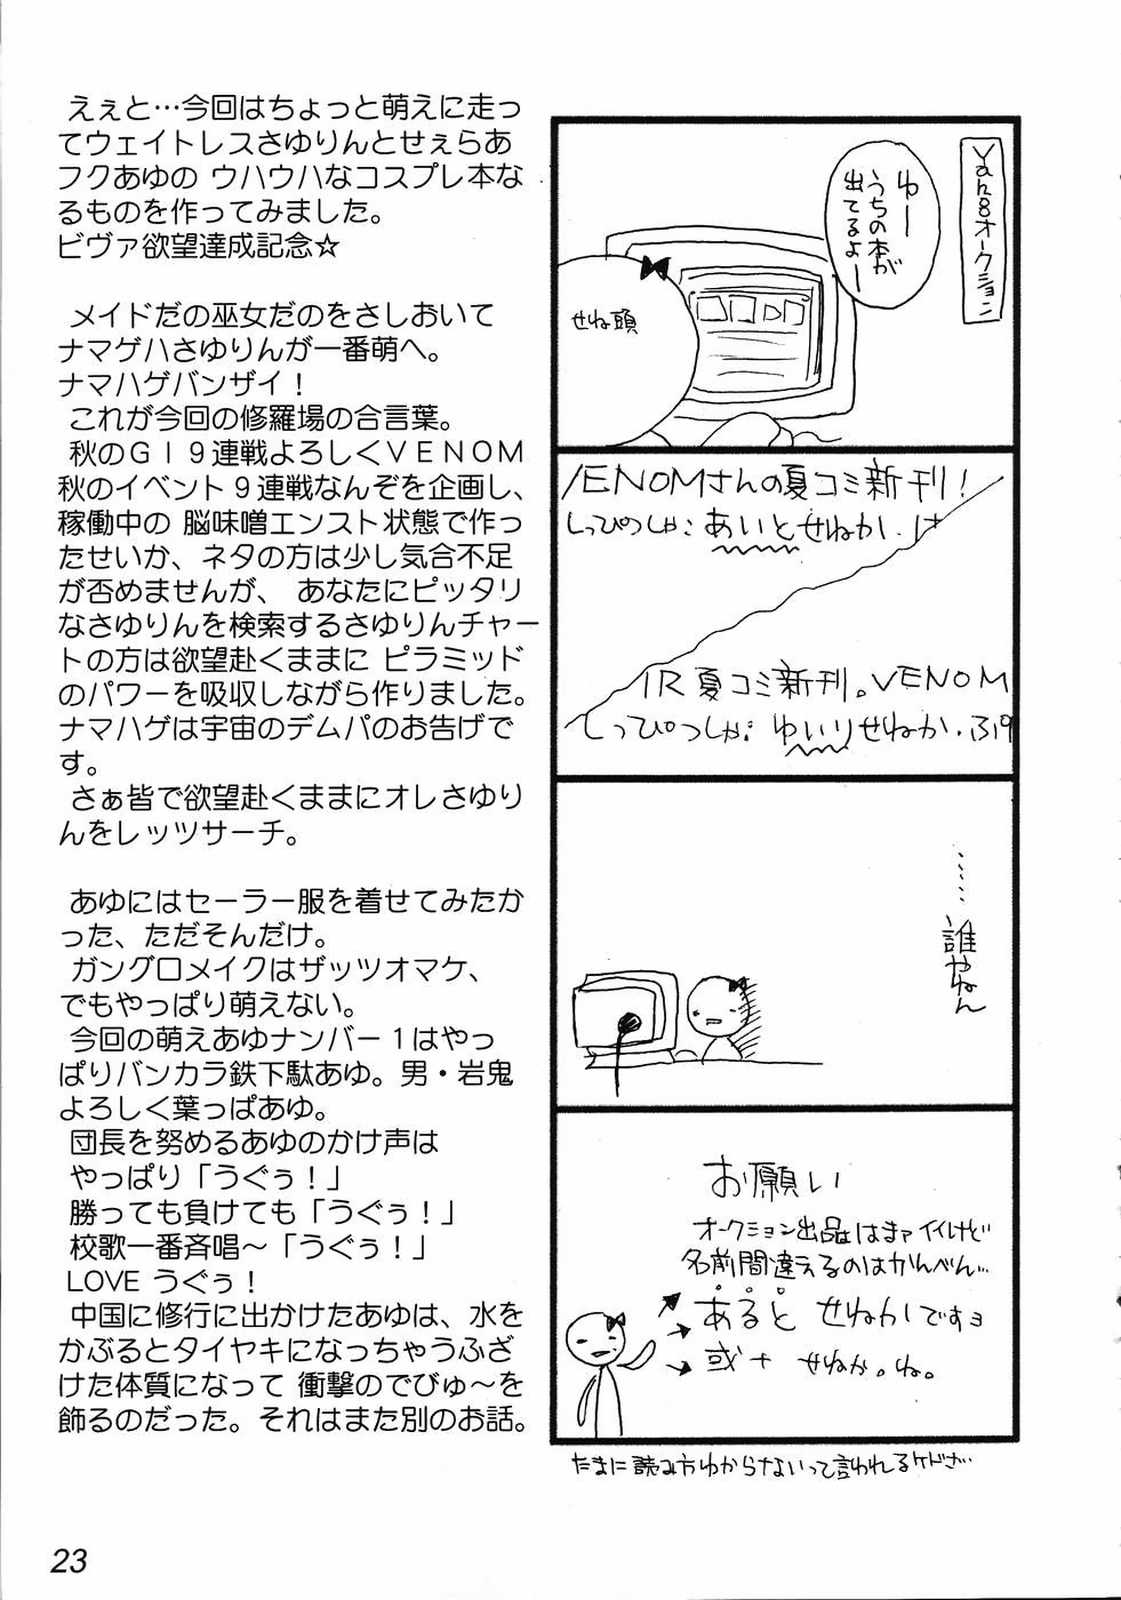 えぇと…今回はちょっと萌えに走っ
てウェイトレスさゆりんとせぇらあ
フクあゆの ウハウハなコスプレ本な
るものを作ってみました。
ビヴァ欲望達成記念☆
メイドだの巫女だのをさしおいて
ナマゲハさゆりんが一番萌へ。
ナマハゲバンザイ！
これが今回の修羅場の合言葉。
秋のＧＩ９連戦よろしくＶＥＮＯＭ
秋のイベント９連戦なんぞを企画し、
稼働中の 脳味噌エンスト状態で作っ
たせいか、ネタの方は少し気合不足
が否めませんが、 あなたにピッタリ
なさゆりんを検索するさゆりんチャー
トの方は欲望赴くままに ピラミッド
のパワーを吸収しながら作りました。
ナマハゲは宇宙のデムパのお告げで
す。
さぁ皆で欲望赴くままにオレさゆり
んをレッツサーチ。
あゆにはセーラー服を着せてみたか
った、ただそんだけ。
ガングロメイクはザッツオマケ、
でもやっぱり萌えない。
今回の萌えあゆナンバー１はやっ
ぱりバンカラ鉄下駄あゆ。男・岩鬼
よろしく葉っぱあゆ。
団長を努めるあゆのかけ声は
やっぱり「うぐぅ！」
勝っても負けても「うぐぅ！」
校歌一番斉唱～「うぐぅ！」
LOVE うぐぅ！
中国に修行に出かけたあゆは、水を
かぶるとタイヤキになっちゃうふざ
けた体質になって 衝撃のでびゅ～を
飾るのだった。それはまた別のお話。
オークション
ゆー
うちの本が
出てるよー
せね頭
VENOMさんの夏コミ新刊！
しっぴつしゃ：あいとせねか．は
IR夏コミ新刊。VENOM
しっぴつしゃ：ゆいりせねか．ぷ
……誰やねん
お願い
オークション出品はまァイイけど
名前間違えるのはかんべん…
あると せねかですョ
或十 せねか。ね。
たまに読み方ゆからないって言われるケドさ…
23